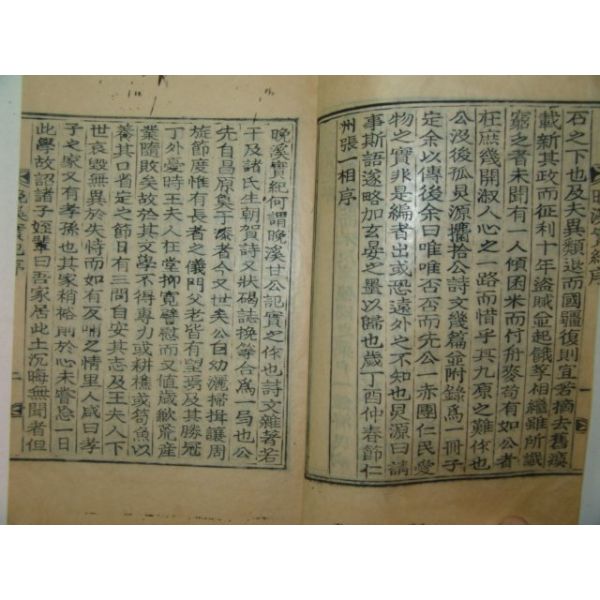 石之下也及夫異類退而國疆復則宜若摘去舊瘼
載新其政而征利十年盜賊並起餓莩相繼雖所識
窮乏者未聞有一人傾囷米而付舟麥苟有如公者
在庶幾開淑人心之一路而惜乎其九原之難作也
公沒後孤貝源攟拾公詩文幾篇並附錄爲一冊子
定余以傳後余曰唯唯否否而先公一赤團仁民愛
物之實非是編者出或恐遠外之不知也貝源曰請
事斯語遂略加玄晏之墨以歸也歲丁酉仲春節仁
州張一相序
晩溪實紀序
一
晩溪實紀何謂晩溪甘公記實之作也詩文雜著若
干及諸氏生朝賀詩文狀碣誌挽等合爲一局也公
先自昌原奠于漆者今又世矣公自幼灑掃揖讓周
旋節度惟有長者之儀門父老皆有望焉及其勝冠
丁外憂時王夫人在堂抑寬譬慰而又値歲歉荒産
業隋敗矣故於其文學不得專力或耕樵或笱魚以
養其口省定之節日有三問自安其志及王夫人下
世哀毀無異於失恃而如有友明之情里人咸曰孝
子之家又有孝孫也其家稍裕則於心未嘗忘一日
此學故詔諸子姪輩曰吾家居此土沉晦無聞者但
晩溪實紀序
二